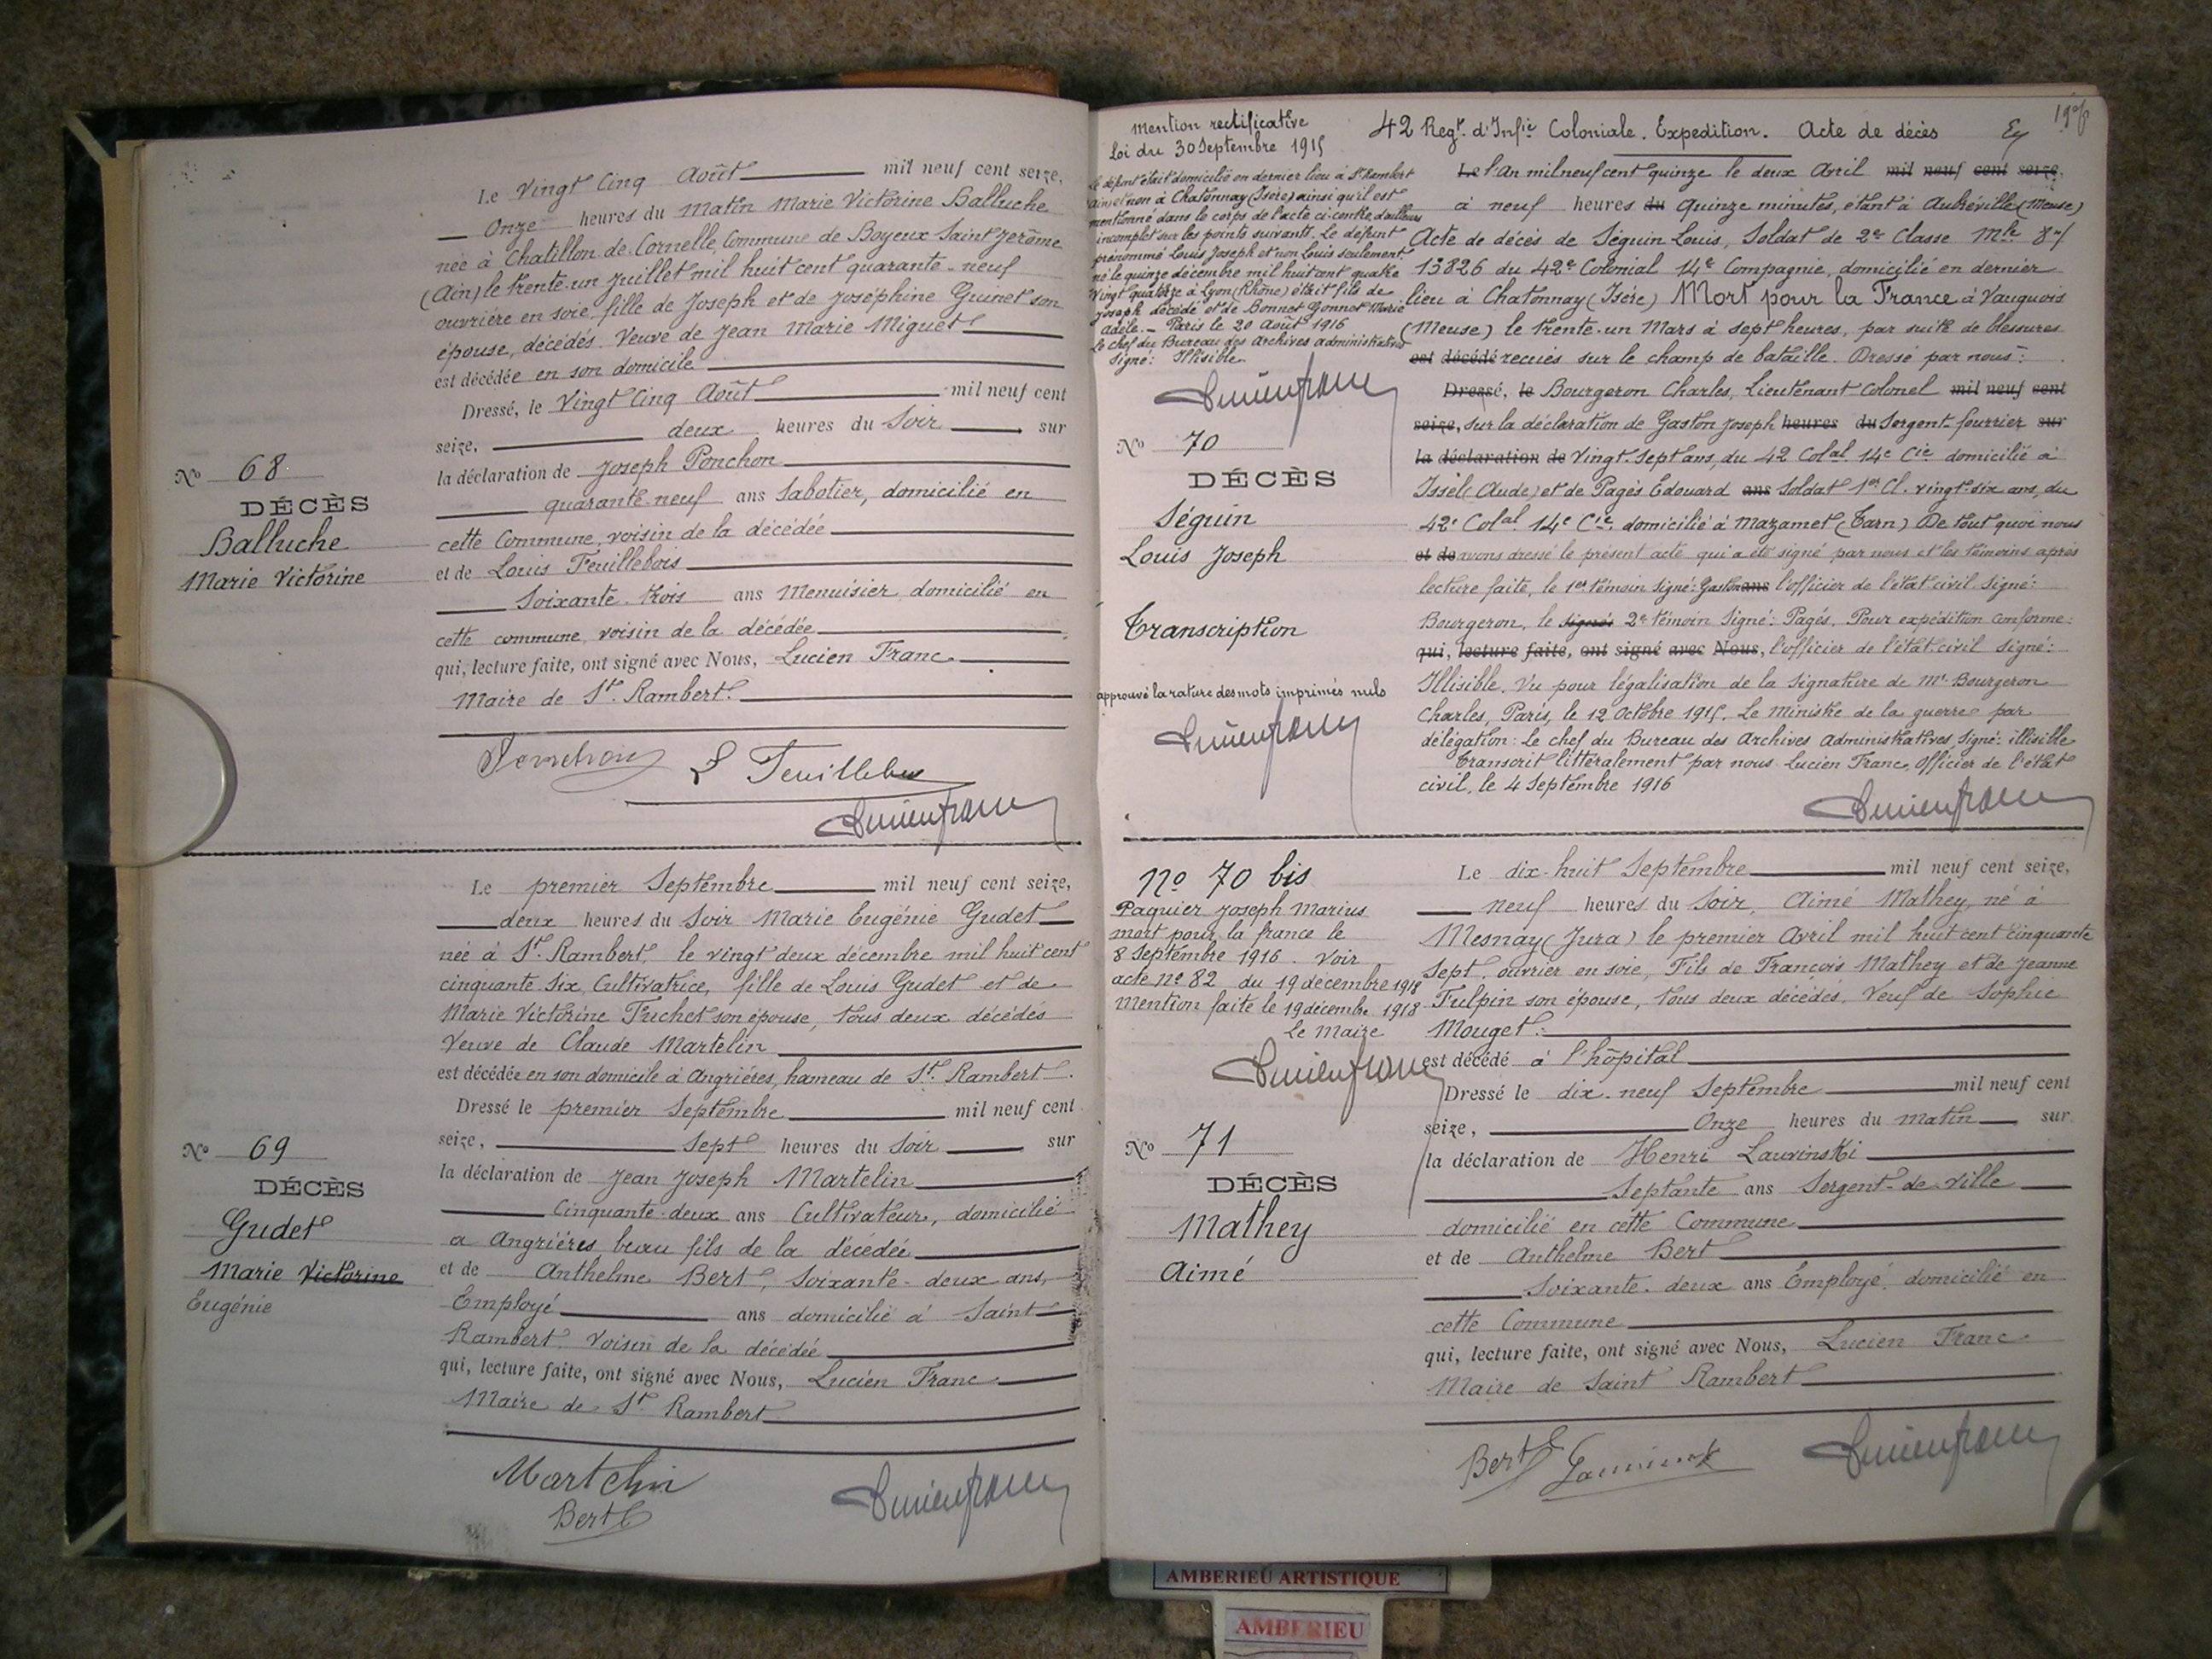 Le Vingt Cinq Août mil neuf cent seize,
Onze heures du Matin Marie Victorine Balluche
née à Chatillon de Cornelle, Commune de Boyeux Saint Jerôme
(Ain) le trente-un Juillet mil huit cent quarante-neuf
ouvrière en soie, fille de Joseph et de Joséphine Guinet son
épouse, décédés. Veuve de Jean Marie Miguet
est décédée en son domicile
Dressé, le Vingt Cinq Août mil neuf cent
seize, deux heures du Soir sur
la déclaration de Joseph Ponchon
quarante-neuf ans Sabotier, domicilié en
cette Commune, voisin de la décédée
et de Louis Feuillebois
Soixante-trois ans Menuisier domicilié en
cette commune, voisin de la décédée
qui, lecture faite, ont signé avec Nous, Lucien Franc
Maire de St. Rambert.
No 68
DÉCÈS
Balluche
Marie Victorine
Ponchon
L Feuillebois
Lucienfranc
Le premier Septembre mil neuf cent seize,
deux heures du Soir Marie Eugénie Gudet
née à St. Rambert, le vingt deux décembre mil huit cent
cinquante six, Cultivatrice, fille de Louis Gudet et de
Marie Victorine Fuchet son épouse, tous deux décédés
Veuve de Claude Martelin
est décédée en son domicile à Angrières, hameau de St. Rambert.
Dressé le premier Septembre mil neuf cent
seize, Sept heures du Soir sur
la déclaration de Jean Joseph Martelin
Cinquante-deux ans Cultivateur, domicilié
a Angrières, beau fils de la décédée
et de Anthelme Bert, Soixante-deux ans,
Employé ans domicilié à Saint
Rambert, Voisin de la décédée
qui, lecture faite, ont signé avec Nous, Lucien Franc
Maire de St. Rambert
No 69
DÉCÈS
Gudet
Marie Victorine
Eugénie
Martelin
Bert
Lucienfranc
Mention rectificative
Loi du 30 Septembre 1915
Le défunt était domicilié en dernier lieu à St Rambert
(Ain) et non à Chatonnay (Isère) ainsi qu'il est
mentionné dans le corps de l'acte ci-contre, d'ailleurs
incomplet sur les points suivants. Le défunt
prénommé Louis Joseph et non Louis seulement
né le quinze décembre mil huit cent quatre
Vingt quatorze à Lyon (Rhône) était fils de
Joseph décédé et de Bonnet Gonnet Marie
Adèle. - Paris le 20 Août 1916
Le chef du Bureau des Archives administratives
Signé: Illisible
Lucienfranc
No 70
DÉCÈS
Séguin
Louis Joseph
Transcription
approuvé la rature des mots imprimés nuls
Lucienfranc
42 Regt. d'Infie Coloniale. Expedition. Acte de décès
Le l'An mil neuf cent quinze le deux Avril mil neuf cent seize,
à neuf heures du quinze minutes, étant à Aubréville (Meuse)
Acte de décès de Séguin Louis, Soldat de 2e Classe Mle
13826 du 42e Colonial 14e Compagnie, domicilié en dernier
lieu à Chatonnay (Isère) Mort pour la France à Vauquois
(Meuse) le trente-un Mars à sept heures, par suite de blessures
est décédé recues sur le champ de bataille. Dressé par nous:
Dressé, le Bourgeron Charles, Lieutenant Colonel mil neuf cent
seize, sur la déclaration de Gaston Joseph heures du Sergent-fourrier sur
la déclaration de Vingt-Sept ans, du 42 Colal. 14e Cie domicilié à
Issel (Aude) et de Pagès Edouard ans Soldat 1er Cl. vingt-six ans, du
42e Colal 14e Cie. domicilié à Mazamet (Tarn) De tout quoi nous
et de avons dressé le présent acte qui a été signé par nous et les témoins après
lecture faite, le 1er témoin Signé: Gaston ans l'officier de l'état-civil Signé:
Bourgeron, le signé 2e témoin Signé: Pagès. Pour expédition conforme:
qui, lecture faite, ont signé avec Nous, l'officier de l'état-civil Signé:
Illisible. Vu pour légalisation de la Signature de Mr. Bourgeron
Charles, Paris, le 12 Octobre 1915. Le Ministre de la guerre par
délégation: Le chef du Bureau des Archives Administratives Signé: illisible
Transcrit littéralement par nous Lucien Franc, Officier de l'état
civil, le 4 Septembre 1916
Lucienfranc
No 70 bis
Paquier Joseph Marius
mort pour la france le
8 Septembre 1916. Voir
acte no 82 du 19 décembre 1918
Mention faite le 19 décembre 1918
Le Maire
Lucienfranc
No 71
DÉCÈS
Mathey
Aimé
Le dix-huit Septembre mil neuf cent seize,
neuf heures du Soir, Aimé Mathey, né à
Mesnay (Jura) le premier Avril mil huit cent cinquante
Sept, ouvrier en soie, Fils de François Mathey et de Jeanne
Fulpin son épouse, tous deux décédés, Veuf de Sophie
Mouget.
est décédé à l'hôpital
Dressé le dix-neuf Septembre mil neuf cent
seize, Onze heures du matin sur
la déclaration de Henri Lavrinski
Septante ans Sergent-de-Ville
domicilié en cette Commune
et de Anthelme Bert
Soixante-deux ans Employé domicilié en
cette Commune
qui, lecture faite, ont signé avec Nous, Lucien Franc
Maire de Saint Rambert
Bert
Lucienfranc
AMBERIEU ARTISTIQUE
AMBERIEU